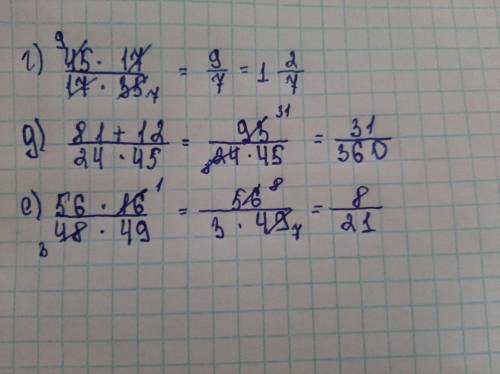 г) 45⁹ · 17 / 17 · 35₇ = 9/7 = 1 2/7
д) 81 + 12 / 24 · 45 = 93³¹ / ₈24 · 45 = 31/360
е) 56 · 16¹ / ₃48 · 49 = 56⁸ / 3 · 49₇ = 8/21